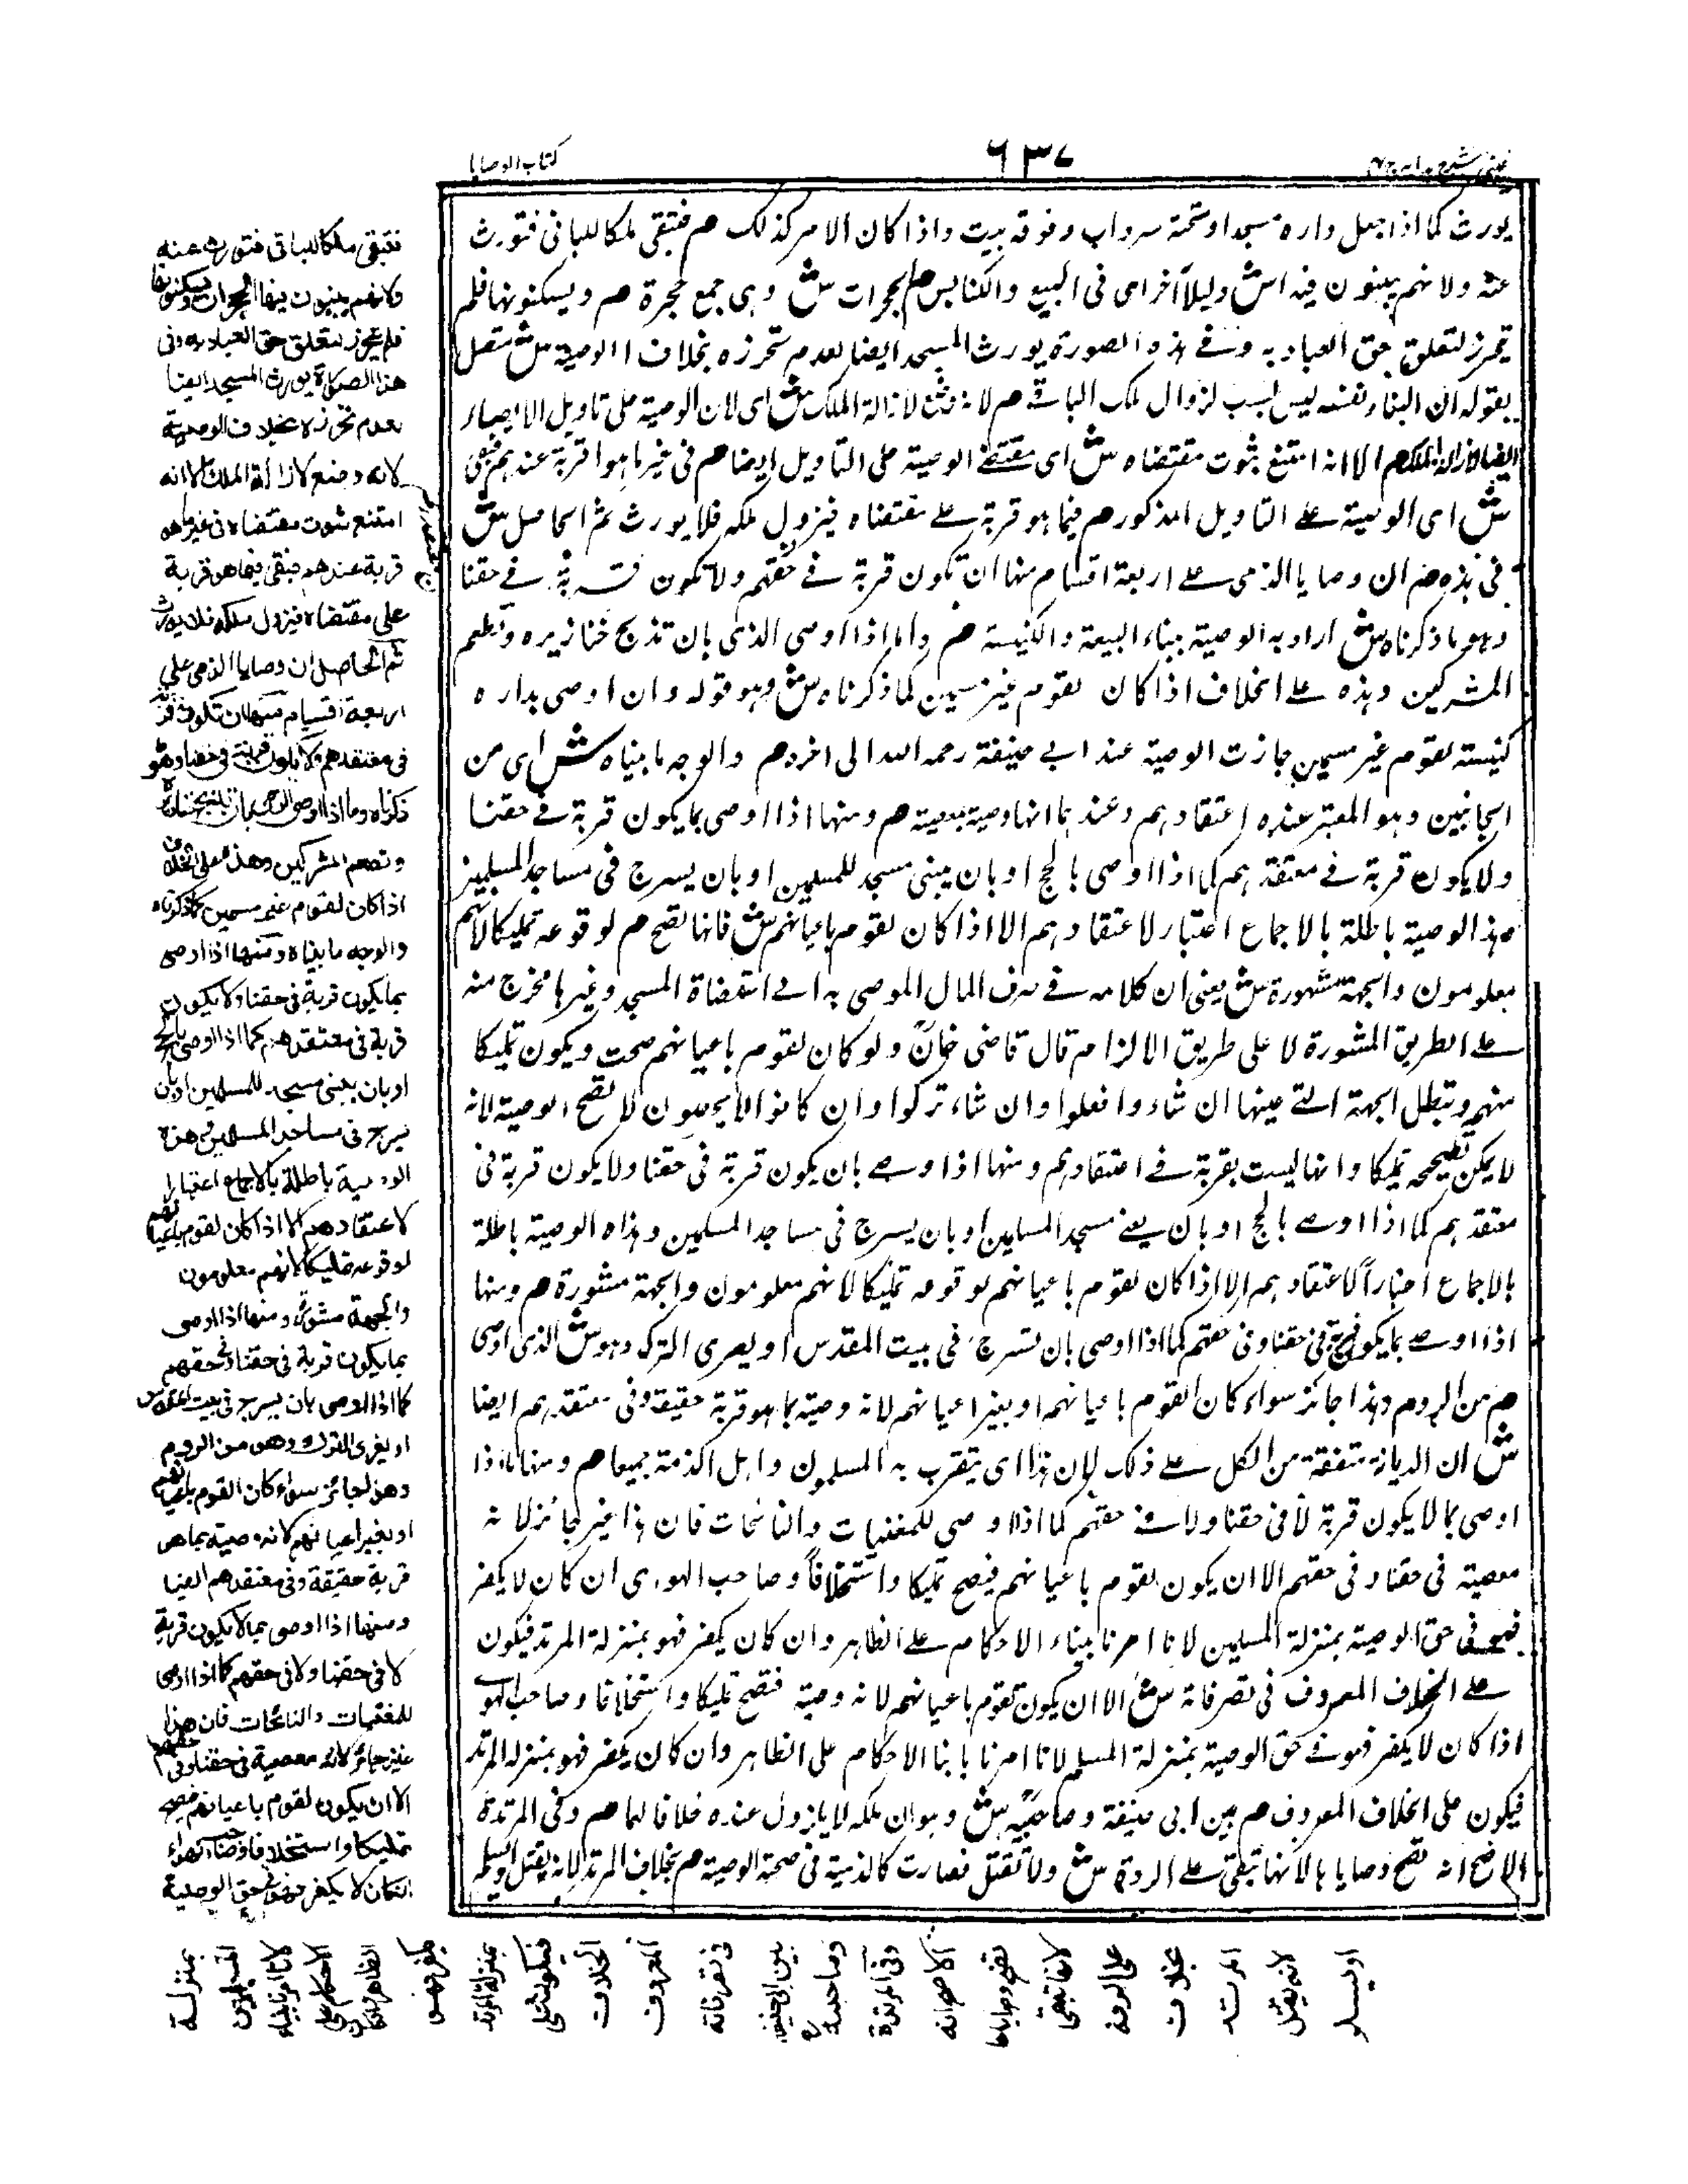 عينى شرح هدايه ج
٦٣٧
كتاب الوصايا
يورث كما اذا جعل داره مسجدا وتحته سرداب وفوقه بيت واذا كان الامر كذلك هم فتبقى ملكا للبانى فتورث
عنه ولانهم يبنون فيه اش دليلا آخر اى فى البيع والكنايس هم الحجرات ش وهى جمع حجرة هم ويسكنونها فلم
يتحرز لتعلق حق العباد به وفى هذه الصورة يورث المسجد ايضا لعدم تحرزه بخلاف الوصية ش متصل
بقوله ان البناء نفسه ليس بسبب لزوال ملك البانى هم لانه وضع لازالة الملك ش اى لان الوصية على تاويل الايصاء
ايضا لازالة الملك هم الا انه امتنع ثبوت مقتضاه ش اى مقتضى الوصية على التاويل ايضا هم فى غير ما هو قربة عندهم فبقى
ش اى الوصية على التاويل المذكور هم فيما هو قربة على مقتضاه فيزول ملكه فلا يورث ثم الحاصل ش
فى هذه هم ان وصايا الذمى على اربعة اقسام منها ان تكون قربة فى حقهم ولا تكون قربة فى حقنا
وهو ما ذكرناه ش اراد به الوصية ببناء البيعة والكنيسة هم واما اذا اوصى الذمى بان تذبح خنازيره وتطعم
المشركين وهذه على الخلاف اذا كان لقوم غير مسمين كما ذكرناه ش وهو قوله وان اوصى بداره
كنيسة لقوم غير مسمين جازت الوصية عند ابى حنيفة رحمه الله الى اخره هم والوجه ما بيناه ش اى من
الجانبين وهو المعتبر عنده اعتقادهم وعندهما انها وصية بمعصية هم ومنها اذا اوصى بما يكون قربة فى حقنا
ولا يكون قربة فى معتقدهم كما اذا اوصى بالحج او بان يبنى مسجد للمسلمين او بان يسرج فى مساجد المسلمين
هذه الوصية باطلة بالاجماع اعتبار لاعتقادهم الا اذا كان لقوم باعيانهم ش فانها تصح هم لوقوعه تمليكا لانهم
معلومون والجهة مشهورة ش يعنى ان كلامه فى صرف المال الموصى به الى استضاة المسجد وغيرها مخرج منه
على الطريق المشورة لا على طريق الالزام قال قاضى خان ولو كان لقوم باعيانهم صحت ويكون تمليكا
منهم وتبطل الجهة التى عينها ان شاءوا فعلوا وان شاء تركوا وان كانوا لا يحصون لا تصح الوصية لانه
لا يمكن تصحيحه تمليكا وانها ليست بقربة فى اعتقادهم ومنها اذا اوصى بان يكون قربة فى حقنا ولا يكون قربة فى
معتقدهم كما اذا اوصى بالحج او بان يبنى مسجد المسلمين او بان يسرج فى مساجد المسلمين وهذه الوصية باطلة
بالاجماع اعتباراً لاعتقادهم الا اذا كان لقوم باعيانهم لوقوعه تمليكا لانهم معلومون والجهة مشورة هم ومنها
اذا اوصى بما يكون قربة فى حقنا وفى حقهم كما اذا اوصى بان تسرج فى بيت المقدس او يعرى الترك وهو ش الذى اوصى
هم من الروم وهذا جائز سواء كان القوم باعيانهم او بغير اعيانهم لانه وصية بما هو قربة حقيقة وفى معتقدهم ايضا
ش ان الديانة متفقة من الكل على ذلك لان هذا اى يتقرب به المسلمون واهل الذمة جميعا هم ومنها ما اذا
اوصى بما لا يكون قربة لا فى حقنا ولا فى حقهم كما اذا اوصى للمغنيات والنائحات فان هذا غير جائز لانه
معصية فى حقنا وفى حقهم الا ان يكون لقوم باعيانهم فيصح تمليكا واستخلافاً وصاحب الهوى ان كان لا يكفر
فهو فى حق الوصية بمنزلة المسلمين لانا امرنا ببناء الاحكام على الظاهر وان كان يكفر فهو بمنزلة المرتد فيكون
على الخلاف المعروف فى تصرفاته ش الا ان يكون لقوم باعيانهم لانه وصية فتصح تمليكا واستخلافا وصاحب الهوى
اذا كان لا يكفر فهو فى حق الوصية بمنزلة المسلم لانا امرنا بابنا الاحكام على الظاهر وان كان يكفر فهو بمنزلة المرتد
فيكون على الخلاف المعروف هم بين ابى حنيفة وصاحبيه ش وهو ان ملكه لا يزول عنده خلافا لهما هم وفى المرتدة
الاصح انه تصح وصاياها لانها تبقى على الردة ش ولا تقتل فصارت كالذمية فى صحة الوصية هم بخلاف المرتد لانه يقتل او يسلم
فتبقى ملكا للبانى فتورث عنه
ولانهم يبنون فيها الحجرات ويسكنونها
فلم يتحرز لتعلق حق العباد به وفى
هذا الصورة يورث المسجد ايضا
لعدم تحرزه بخلاف الوصية
لانه وضع لازالة الملك الا انه
امتنع ثبوت مقتضاه فى غير ما هو
قربة عندهم فبقى فيما هو قربة
على مقتضاه فيزول ملكه فلا يورث
ثم الحاصل ان وصايا الذمى على
اربعة اقسام منها ان تكون قربة
فى معتقدهم ولا يكون قربة فى حقنا وهو
ذكرناه وما اذا اوصى الذمى بان تذبح خنازيره
وتطعم المشركين وهذه على الخلاف
اذا كان لقوم غير مسمين كما ذكرناه
والوجه ما بيناه ومنها اذا اوصى
بما يكون قربة فى حقنا ولا يكون
قربة فى معتقدهم كما اذا اوصى بالحج
او بان يبنى مسجد للمسلمين او بان
يسرج فى مساجد المسلمين فهذه
الوصية باطلة بالاجماع اعتبارا
لاعتقادهم الا اذا كان لقوم باعيانهم
لوقوعه تمليكا لانهم معلومون
والجهة مشورة ومنها اذا اوصى
بما يكون قربة فى حقنا وفى حقهم
كما اذا اوصى بان يسرج فى بيت المقدس
او يغزى الترك وهو من الروم
وهذا جائز سواء كان القوم باعيانهم
او بغير اعيانهم لانه وصية بما هو
قربة حقيقة وفى معتقدهم ايضا
ومنها اذا اوصى بما لا يكون قربة
لا فى حقنا ولا فى حقهم كما اذا اوصى
للمغنيات والنائحات فان هذا
غير جائز لانه معصية فى حقنا وفى حقهم
الا ان يكون لقوم باعيانهم فيصح
تمليكا واستخلافا وصاحب الهواء
ان كان لا يكفر فهو فى حق الوصية
بمنزلة
المسلمين
لانا امرنا ببناء
الاحكام على
الظاهر وان كان
يكفر فهو
بمنزلة المرتد
فيكون على
الخلاف
المعروف
فى تصرفاته
بين ابى حنيفة
وصاحبيه
وفى المرتدة
الاصح انه
تصح وصاياها
لانها تبقى
على الردة
بخلاف
المرتد
لانه يقتل
او يسلم